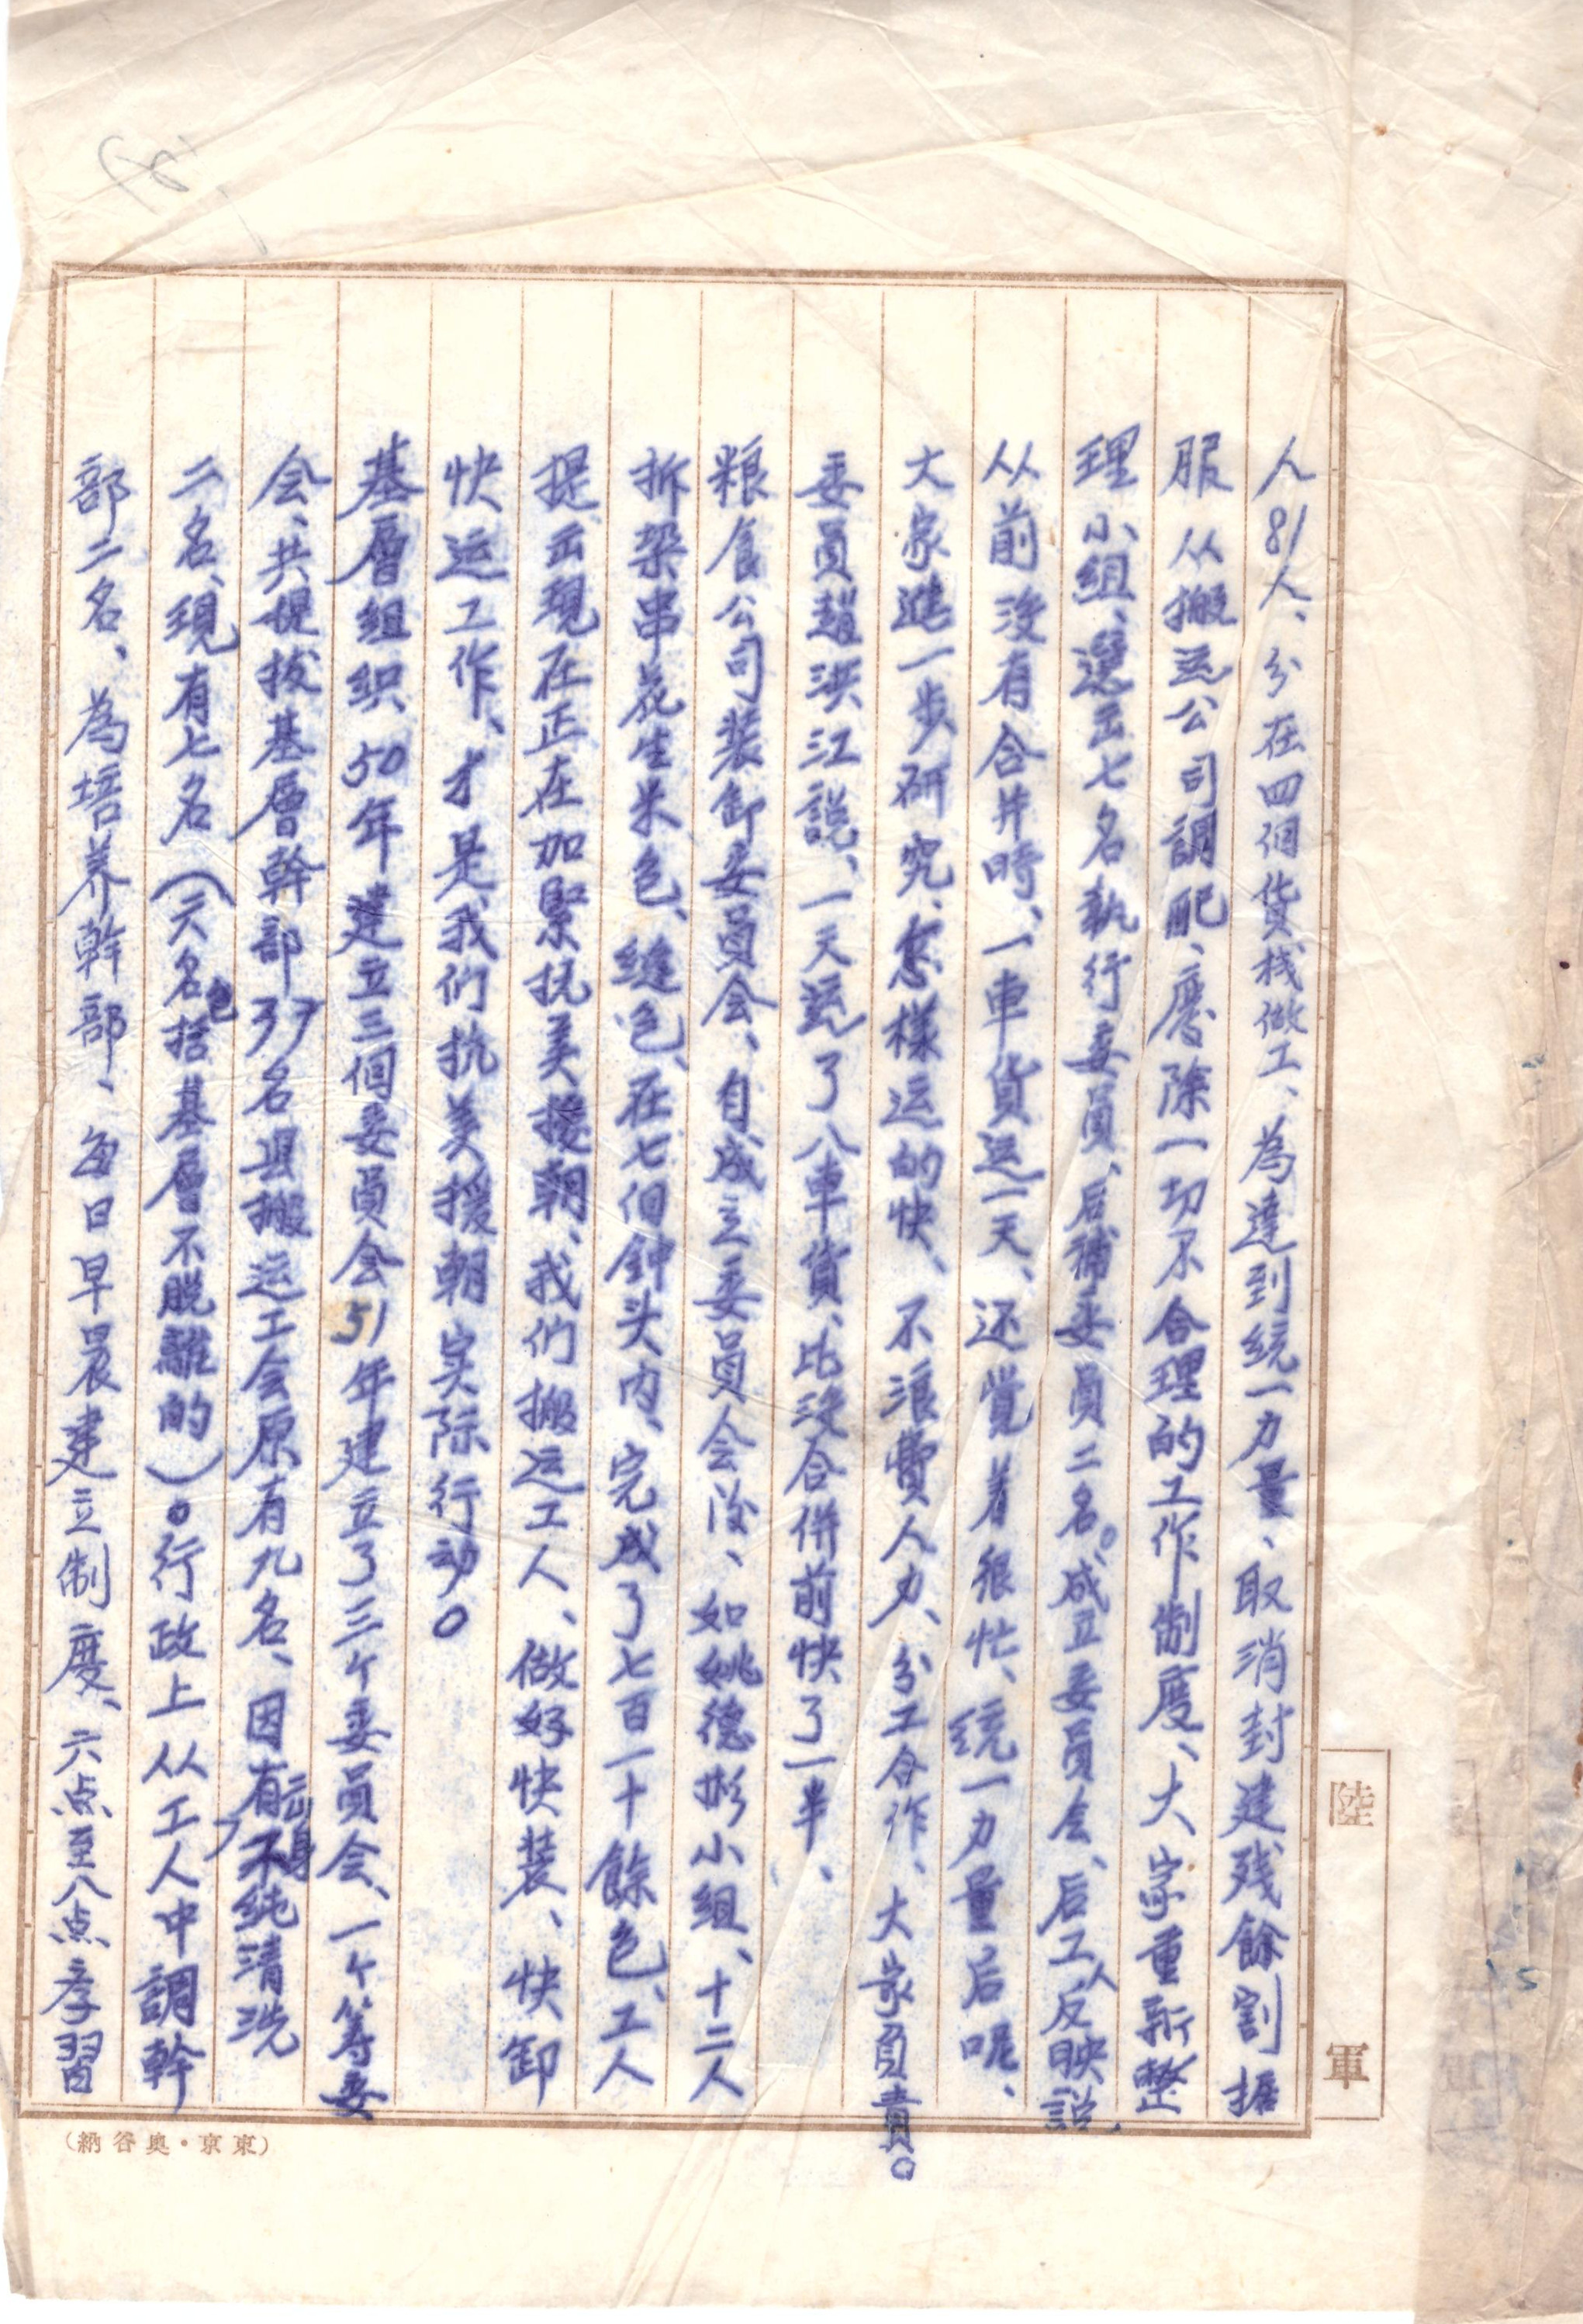 人81人、分在四個货栈做工、為達到統一力量、取消封建残餘割据
服从搬运公司調配、廢除一切不合理的工作制度、大家重新整
理小組、選出七名執行委員、后補委員二名。成立委員会、后工人反映説、
从前没有合并時、一車貨运一天、还覚着很忙、統一力量后呢、
大家進一步研究、怎樣运的快、不浪費人力、分工合作、大家負責。
委員趙洪江説、一天运了八車貨、比没合併前快了一半、
粮食公司装卸委員会、自成立委員会後、如姚德彬小組、十二人
拆梁串花生米包、縫包、在七個钟头内、完成了七百一十餘包、工人
提出現在正在加緊抗美援朝、我們搬运工人、做好快装、快卸
快运工作、才是我們抗美援朝实际行动。
基層组织50年建立三個委員会51年建立了三个委員会、一个筹委
会、共提拔基層幹部37名县搬运工会原有九名、因有不純清洗
二名、現有七名(六名包括基層不脱離的)。行政上从工人中調幹
部二名、為培养幹部、每日早晨建立制度、六点至八点学習
陸軍
(東京・奥谷納)